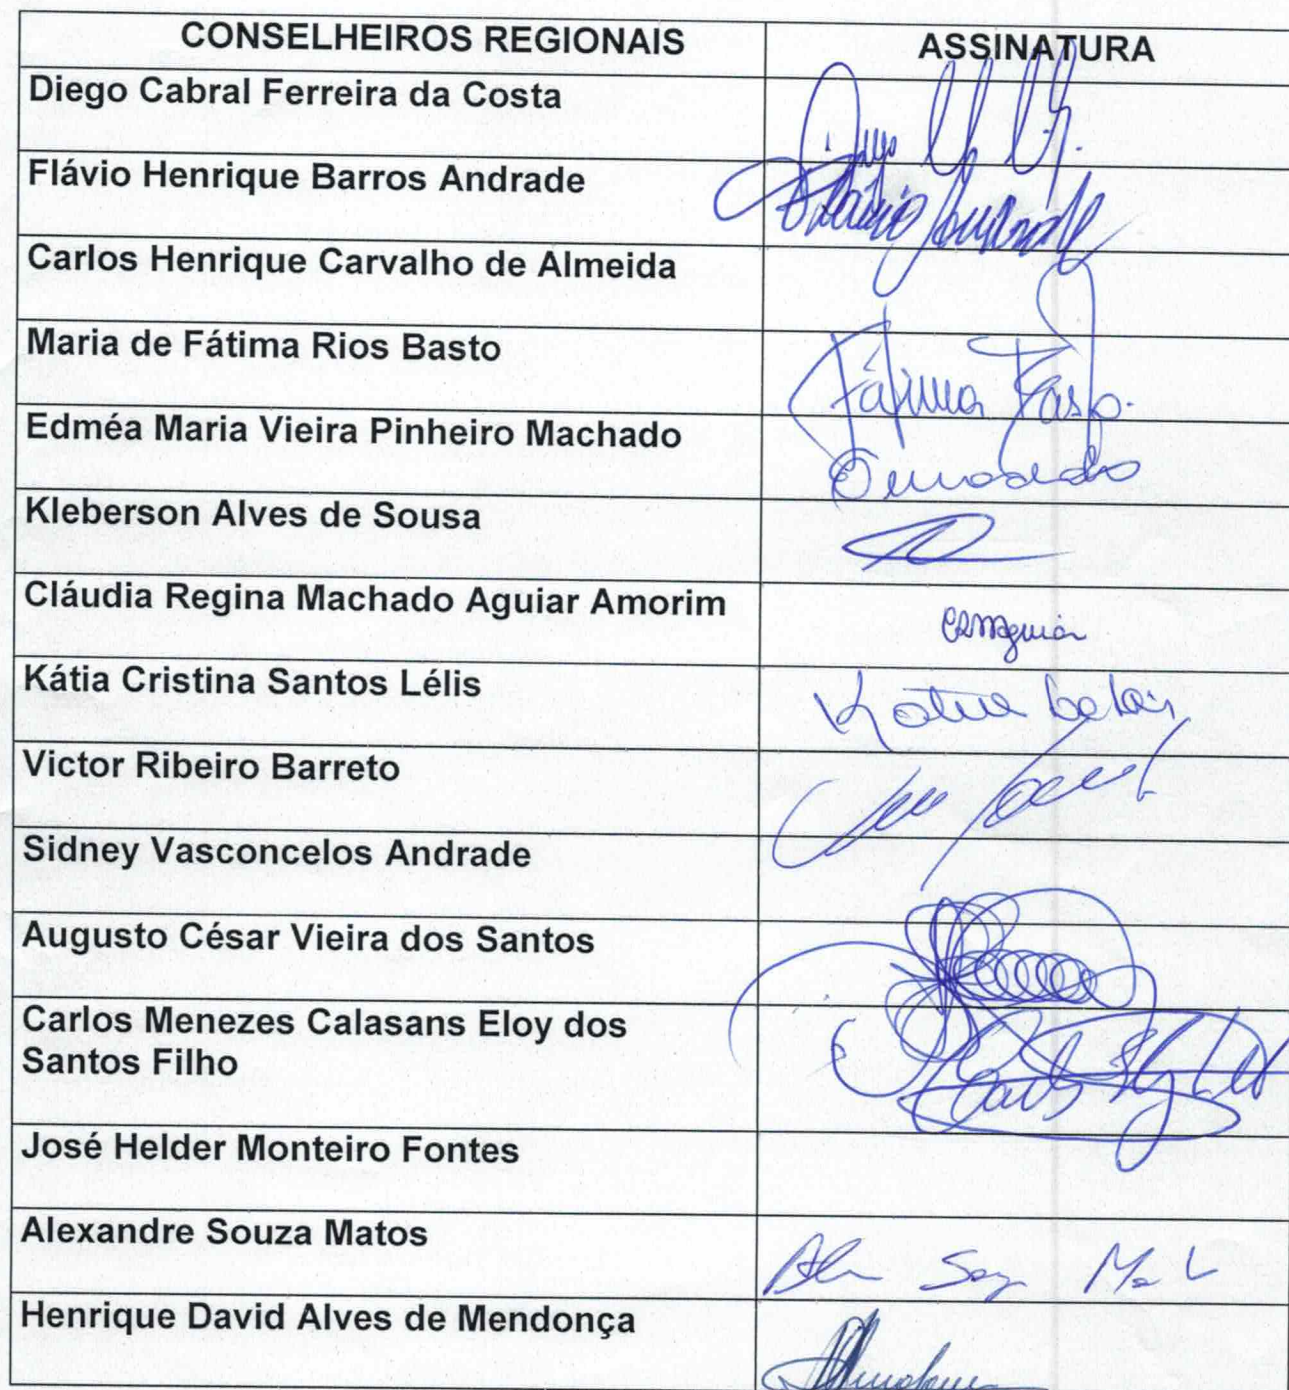 CONSELHEIROS REGIONAIS ASSINATURA
Diego Cabral Ferreira da Costa
Flávio Henrique Barros Andrade
Carlos Henrique Carvalho de Almeida
Maria de Fátima Rios Basto Fátima Basto
Edméa Maria Vieira Pinheiro Machado
Kleberson Alves de Sousa
Cláudia Regina Machado Aguiar Amorim CRMAguiar
Kátia Cristina Santos Lélis
Victor Ribeiro Barreto
Sidney Vasconcelos Andrade
Augusto César Vieira dos Santos
Carlos Menezes Calasans Eloy dos
Santos Filho
José Helder Monteiro Fontes
Alexandre Souza Matos
Henrique David Alves de Mendonça